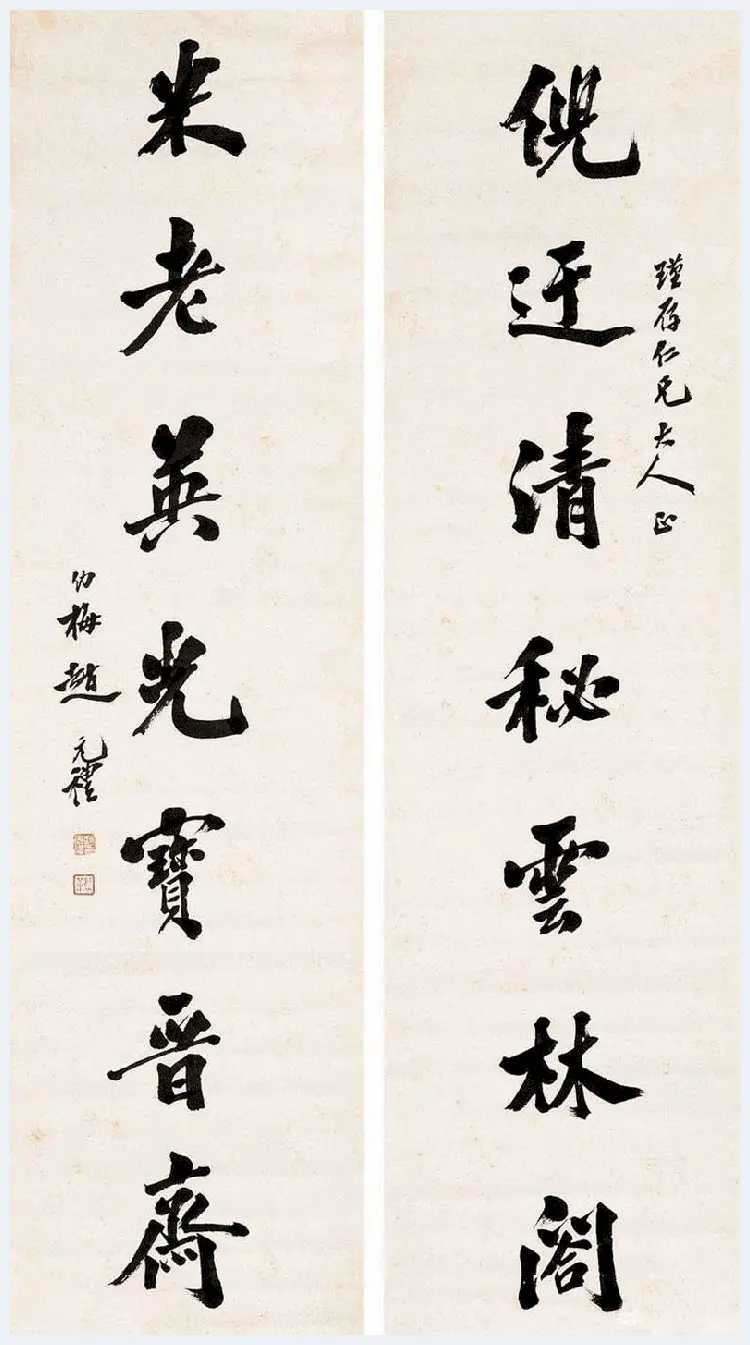 瑾存仁兄大人正
倪迂清秘雲林閣
米老英光寶晋齋
幼梅趙元禮